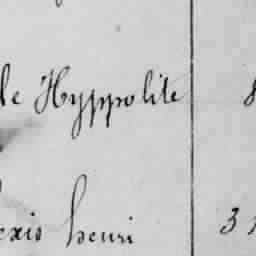 le Hyppolite 8
exis henri 3